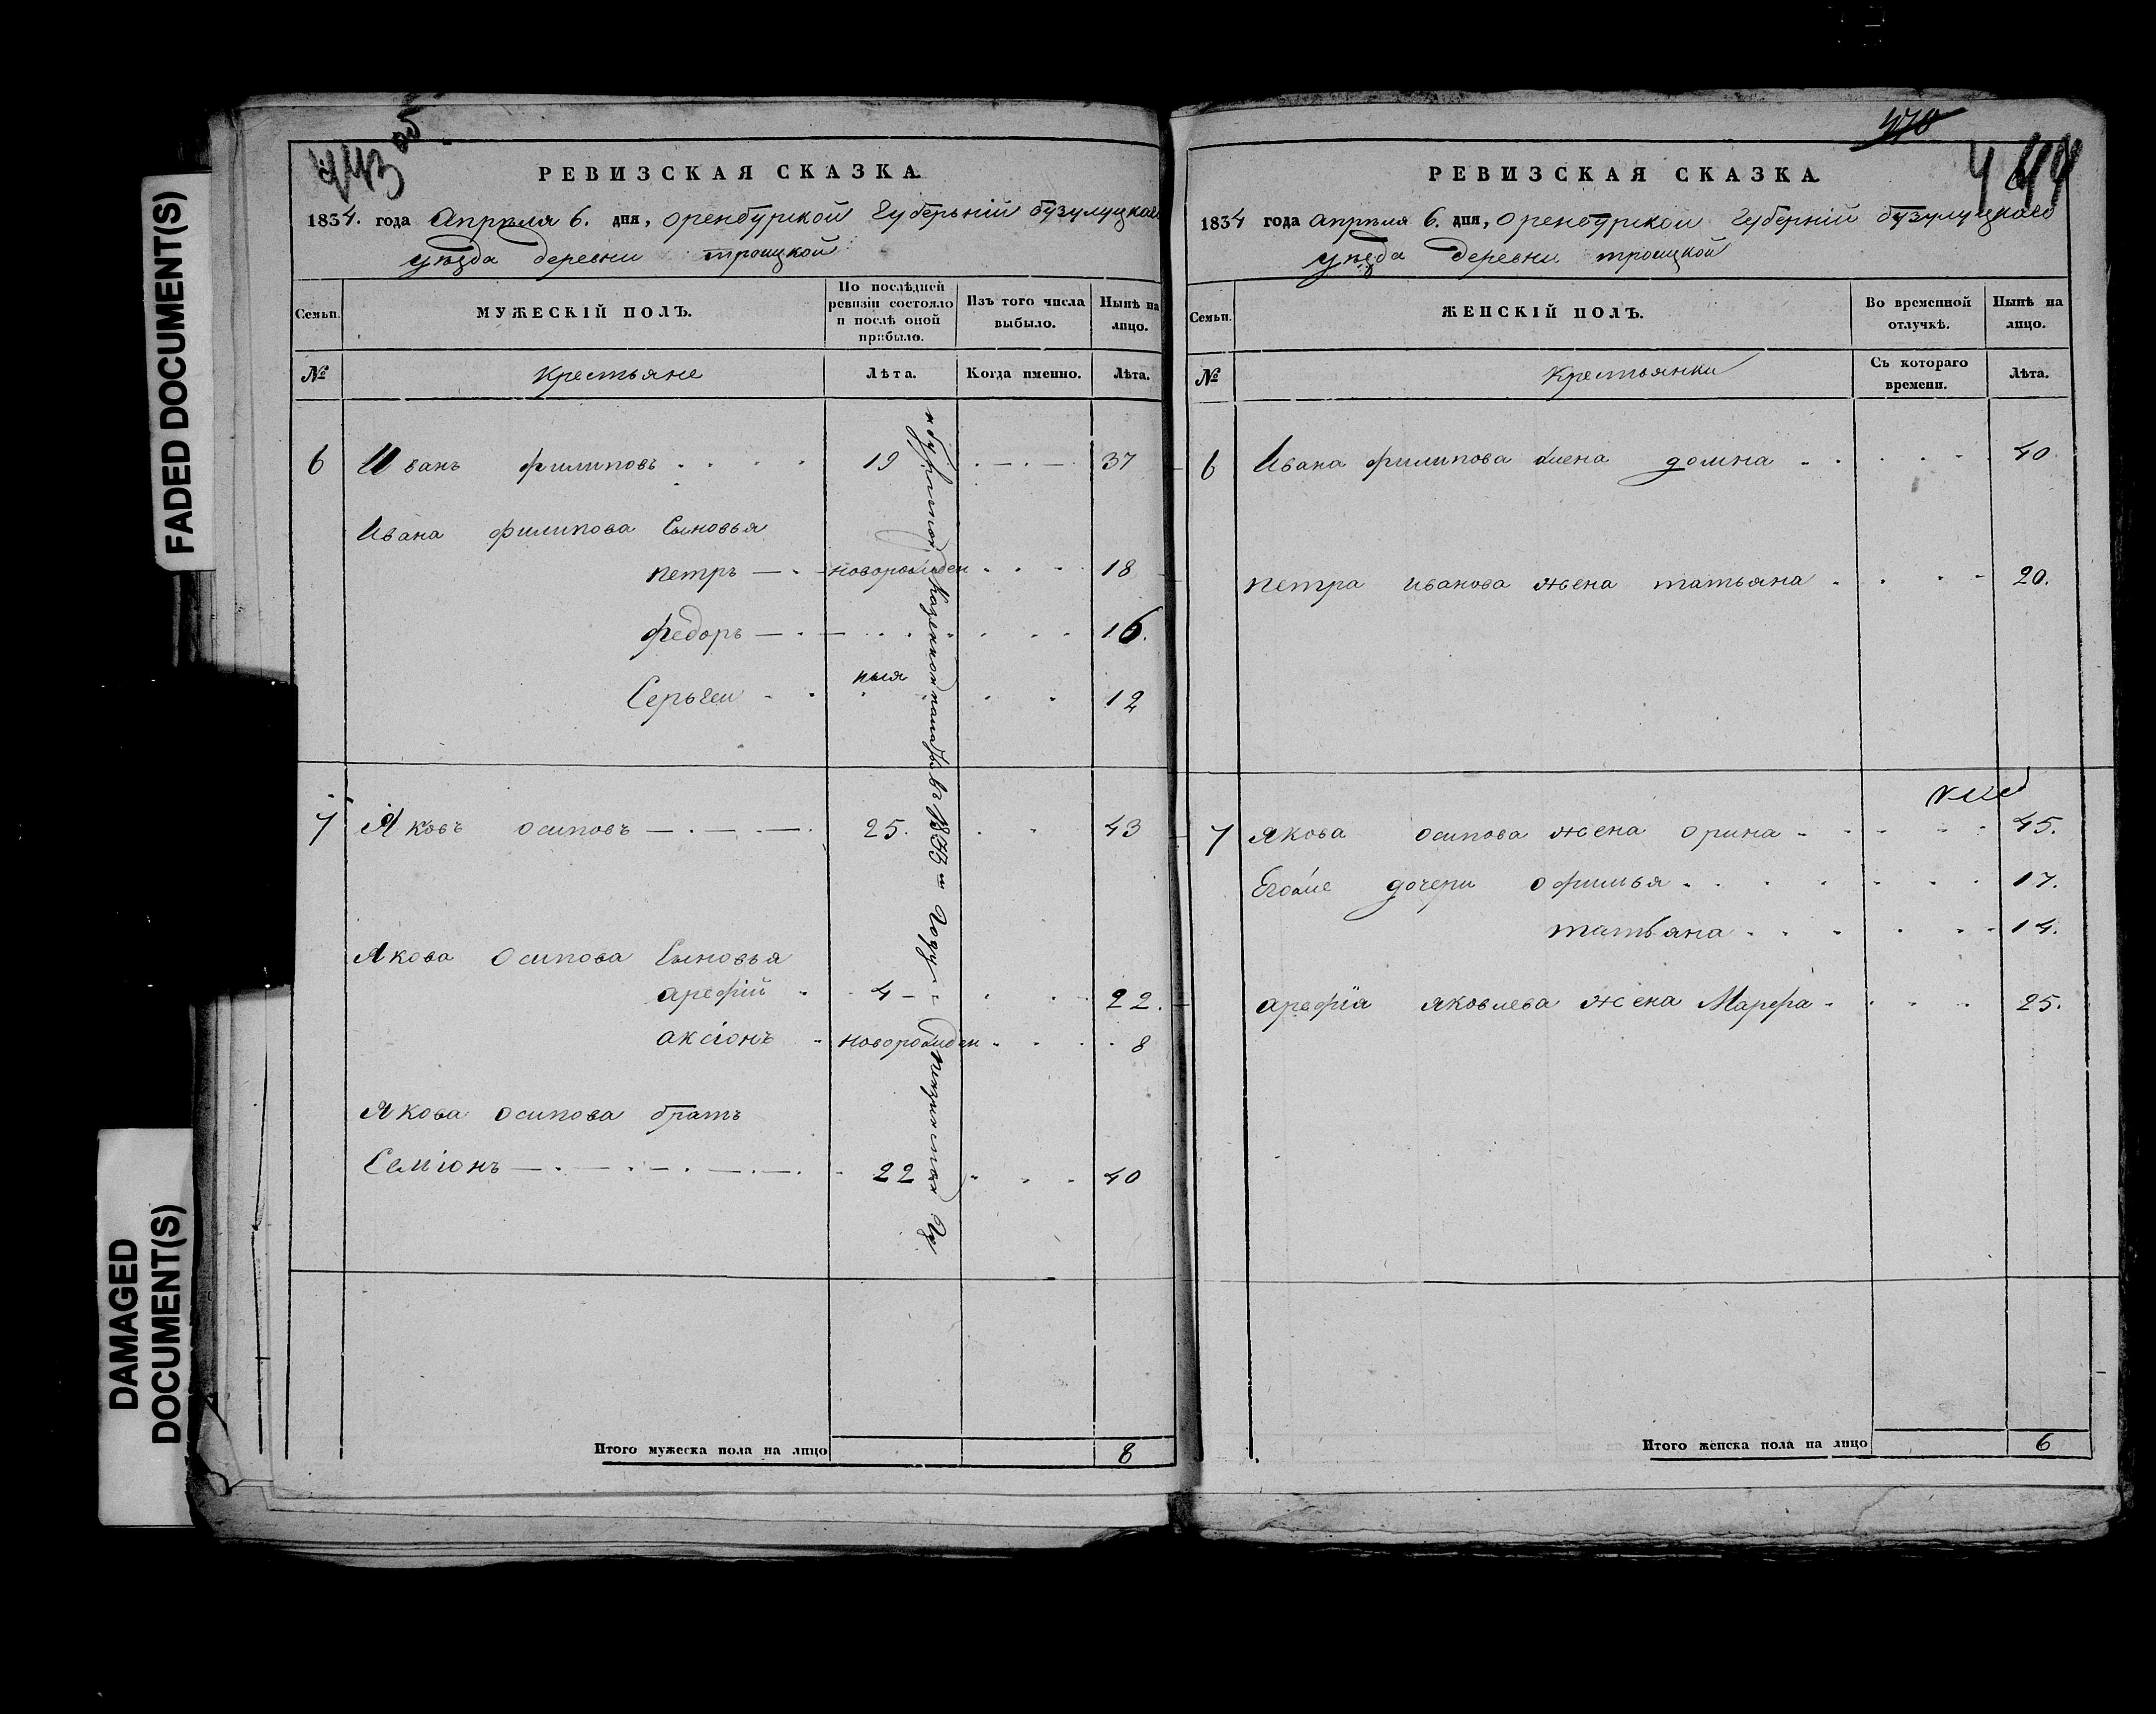 FADED DOCUMENT(S)
DAMAGED
DOCUMENT(S)
443 об
РЕВИЗСКАЯ СКАЗКА.
1834. года Апреля 6. дня, оренбурской Губерьнiй бузулуцкаго
уѣзда деревни троицкой
Семьи.
МУЖЕСКIЙ ПОЛЪ.
По послѣдней ревизiи состояло и послѣ оной прибыло.
Изъ того числа выбыло.
Нынѣ на лицо.
№
Крестьяне
Лѣта.
Когда именно.
Лѣта.
6 Иванъ филиповъ 19 37
Ивана филипова Сыновья
петръ новорожден 18
федоръ 16.
ныя
Серьгеи 12
7 Яковъ осиповъ 25. 43
Якова Осипова Сыновья
арефiй 4 22.
аксiонъ новорожден 8
Якова осипова братъ
Семiонъ 22 40
въ 1833 Году
Итого мужеска пола на лицо 8
470
444
РЕВИЗСКАЯ СКАЗКА.
1834 года апреля 6. дня, оренбурской Губернiй бузулуцкаго
уѣзда деревни троицкой
Семьи.
ЖЕНСКIЙ ПОЛЪ.
Во временной отлучкѣ.
Нынѣ на лицо.
№
Крестьянки
Съ котораго времени.
Лѣта.
6 Ивана филипова жена домна 40
петра иванова жена татьяна 20.
7 Якова осипова жена орина 45.
Егоже дочери офимья 17.
татьяна 14.
арефiя яковлева жена Марфа 25.
Итого женска пола на лицо 6